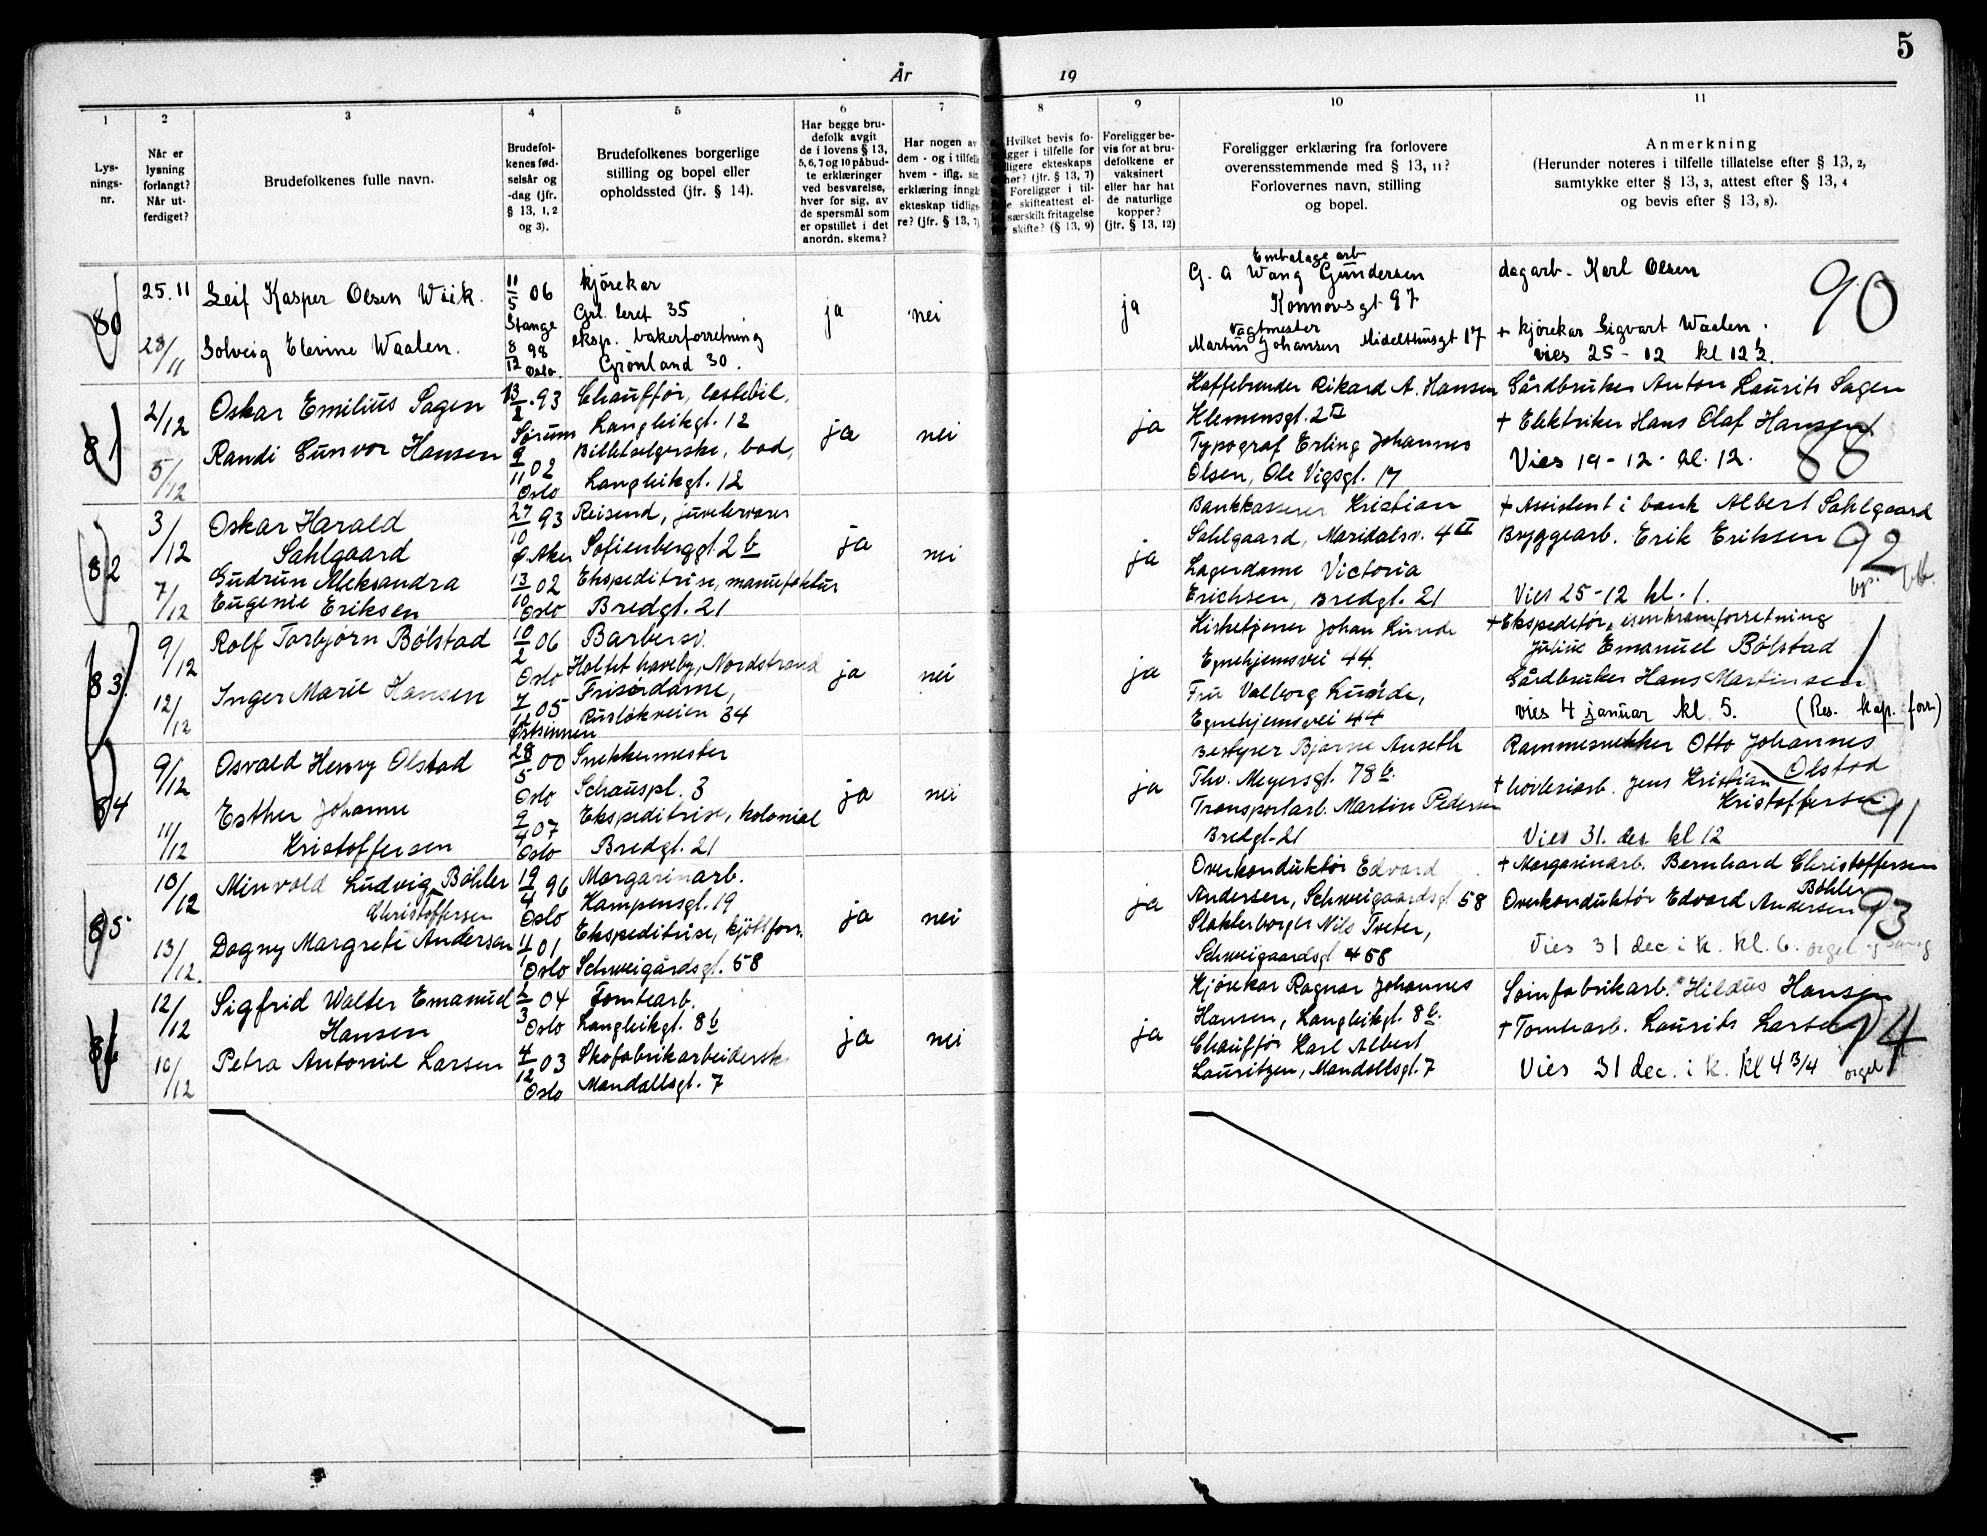 5
År 19
1
2
3
4
5
6
7
8
9
10
11
Lys-
nings-
nr.
Når er
lysning
forlangt?
Når ut-
ferdiget?
Brudefolkenes fulle navn.
Brudefol-
kenes fød-
selsår og
-dag (jfr.
§ 13, 1, 2
og 3).
Brudefolkenes borgerlige
stilling og bopel eller
opholdssted (jfr. § 14).
Har begge bru-
defolk avgit
de i lovens § 13,
5, 6, 7 og 10 påbud-
te erklæringer
ved besvarelse,
hver for sig, av
de spørsmål som
er opstillet i det
anordn. skema?
Har nogen av
dem - og i tilfelle
hvem - iflg. sin
erklæring inngå
ekteskap tidlige
re? (jfr. § 13, 7)
Hvilket bevis fo-
ligger i tilfelle for
ligere ekteskaps
hør? (jfr. § 13, 7)
Foreligger i til-
skifteattest el-
særskilt fritagelse
skifte? (§ 13, 9)
Foreligger be-
vis for at bru-
defolkene er
vaksinert
eller har hat
de naturlige
kopper?
(jfr. § 13, 12)
Foreligger erklæring fra forlovere
overensstemmende med § 13, 11?
Forlovernes navn, stilling
og bopel.
Anmerkning
(Herunder noteres i tilfelle tillatelse efter § 13, 2,
samtykke efter § 13, 3, attest efter § 13, 4
og bevis efter § 13, 8).
80
25.11
28/11
Leif Kasper Olsen Wiik.
Solveig Elevine Waalen.
11/5 06
Stange
8/12 98
Oslo.
kjørekar
Grl. leret 35
eksp. bakerforretning
Grønland 30.
ja
nei
ja
Embalage arb
G. A Wang Gundersen
Konnovsgt 97
Vagtmester
Martin Johansen Midelthusgt 17
dagarb. Karl Olsen
+ kjørekar Sigvart Waalen.
vies 25 - 12 kl 12½.
90
81
2/12
5/12
Oskar Emilius Sagen
Randi Gunvor Hansen
93
Sørum
9/11 02
Oslo
Chauffør, lastebil,
Langleikgt. 12
Billetselgerske, bad,
Langleikgt. 12
ja
nei
ja
Kaffebrender Rikard A. Hansen
Klemensgt. 2 II
Typograf Erling Johannes
Olsen, Ole Vigsgt. 17
Gårdbruker Anton Laurits Sagen
+ Elektriker Hans Olaf Hansen
Vies 19 - 12 - kl. 12.
88
82
3/12
7/12
Oskar Harald
Sahlgaard
Gudrun Aleksandra
Eugenie Eriksen
27/10 93
Ø. Aker
13/10 02
Oslo
Reisend, juvelervarer
Sofienberggt. 2 b
Ekspeditrise, manufaktur
Bredgt. 21
ja
nei
ja
Bankkasserer Kristian
Sahlgaard, Maridalsv. 4 II
Lagerdame Victoria
Erichsen, Bredgt. 21
+ Assistent i bank Albert Sahlgaard
Bryggearb. Erik Eriksen
Vies 25 - 12 kl. 1.
92
83
9/12
12/12
Rolf Torbjørn Bølstad
Inger Marie Hansen
10/2 06
Oslo
7/12 05
Østsinnen
Barbersv.
Holtet haveby, Nordstrand
Frisørdame,
Rusløkveien 34
ja
nei
ja
Kirketjener Johan Lunde
Egnehjemsvei 44.
Fru Valborg Lunde,
Egnehjemsvei 44
+ Ekspeditør, isenkramforretning
Julius Emanuel Bølstad
Gårdbruker Hans Martinsen
vies 4 januar kl 5. (Res. kap. forr.)
1
84
9/12
11/12
Osvald Henry Olstad
Esther Johanne
Kristoffersen
28/5 00
Oslo
9/4 07
Oslo
Snekkermester
Schauspl. 3
Ekspeditrise, kolonial
Bredgt. 21
ja
nei
ja
Bestyrer Bjarne Anseth
Thv. Meyersgt. 78 b.
Transportarb. Martin Pedersen
Bredgt. 21
Rammesnekker Otto Johannes
Olstad
+ høvleriarb. Jens Kristian
Kristoffersen
Vies 31. des kl 12
91
85
10/12
13/12.
Minvold Ludvig Bøhler
Christoffersen
Dagny Margrete Andersen
19/4 96
Oslo
01
Oslo
Margarinarb.
Kampensgt. 19
Ekspeditrise, kjøttforr.
Schweigårdsgt. 58
ja
nei
ja
Overkonduktør Edvard
Andersen, Schweigaardsgt 58
Slakterborger Nils Tveter,
Schweigaardsgt 58
+ Margarinarb. Bernhard Christoffersen
Bøhler
Overkonduktør Edvard Andersen
Vies 31 dec i k. kl. 6. orgel og sang
93
86
12/12
16/12
Sigfrid Walter Emanuel
Hansen
Petra Antonie Larsen
04
Oslo
4/12 03
Oslo
Tomtearb.
Langleikgt. 8 b
Skofabrikarbeiderske
Mandallsgt. 7
ja
nei
ja
Kjørekar Ragnar Johannes
Hansen, Langleikgt. 8 b.
Chauffør Karl Albert
Lauritzen, Mandallsgt. 7
Hildus Hansen
+ Tomtearb. Laurits Larsen
Vies 31 dec. i k. kl 4 3/4 orgel
94